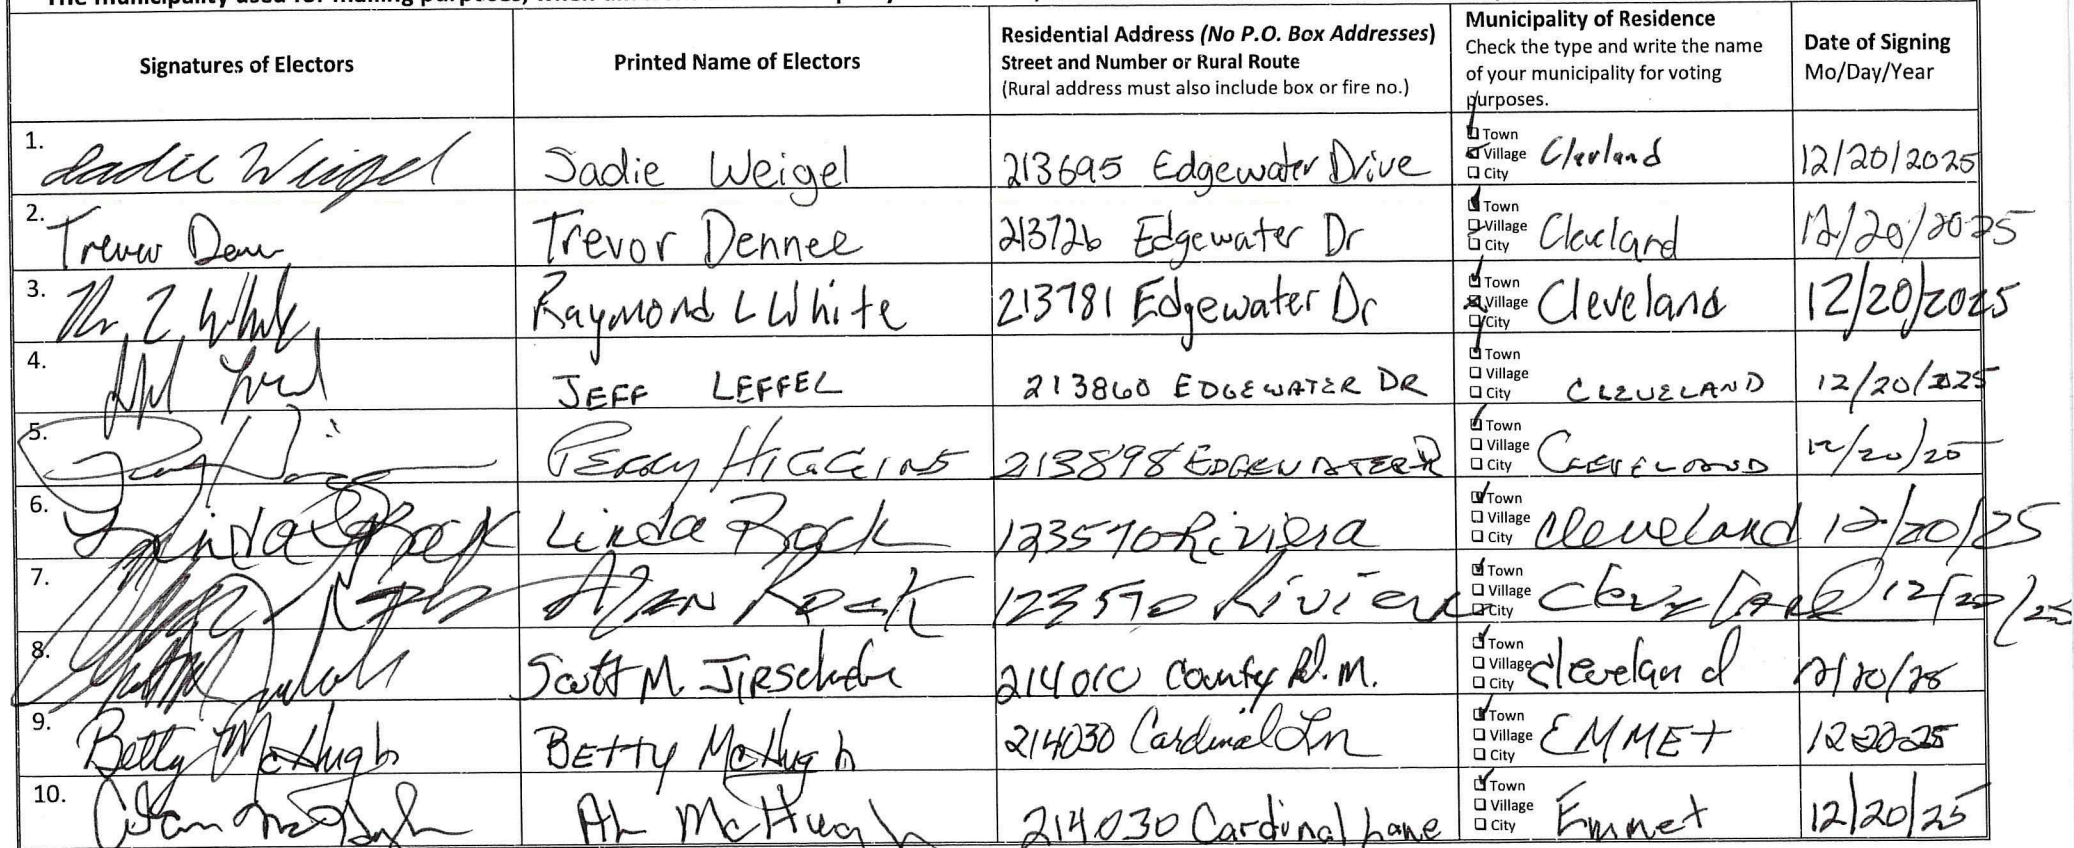 Signatures of Electors
Printed Name of Electors
Residential Address (No P.O. Box Addresses)
Street and Number or Rural Route
(Rural address must also include box or fire no.)
Municipality of Residence
Check the type and write the name
of your municipality for voting
purposes.
Date of Signing
Mo/Day/Year
1. Sadie Weigel Sadie Weigel 213695 Edgewater Drive
Town
Village
City
12/20/2025
2. Trevor Trevor Dennee 213726 Edgewater Dr
Town
Village
City
Cleveland 12/20/2025
3. White Raymond L White 213781 Edgewater Dr
Town
Village
City
Cleveland 12/20/2025
4. JEFF LEFFEL 213860 EDGEWATER DR
Town
Village
City
CLEVELAND 12/20/2025
5. HIGGINS 213898 EDGEWATER
Town
Village
City
CLEVELAND 12/20/25
6. Linda Rock Linda Rock 123570 Riviera
Town
Village
City
Cleveland 12/20/25
7. Alan Rock 123570 Riviera
Town
Village
City
Cleveland 12/20/25
8. Scott M. 214010 County Rd. M.
Town
Village
City
Cleveland 12/20/25
9. Betty McHugh BETTY McHugh 214030 Cardinal Ln
Town
Village
City
EMMET 12-20-25
10. McHugh 214030 Cardinal Lane
Town
Village
City
Emmet 12/20/25